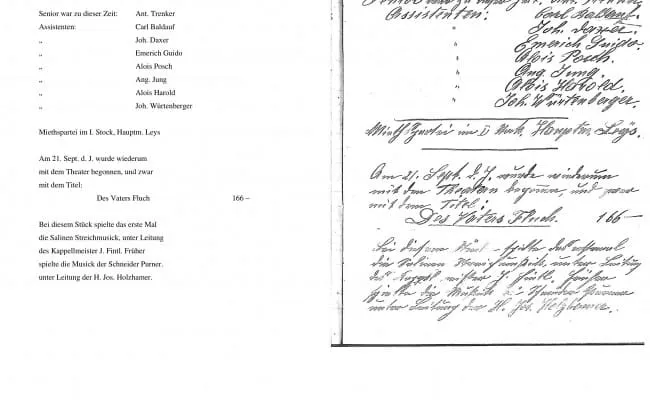 Senior war zu dieser Zeit: Ant. Trenker
Assistenten: Carl Baldauf
„ Joh. Daxer
„ Emerich Guido
„ Alois Posch
„ Ang. Jung
„ Alois Harold
„ Joh. Würtenberger
Miethspartei im I. Stock, Hauptm. Leys
Am 21. Sept. d. J. wurde wiederum
mit dem Theater begonnen, und zwar
mit dem Titel:
Des Vaters Fluch 166 –
Bei diesem Stück spielte das erste Mal
die Salinen Streichmusick, unter Leitung
des Kappellmeister J. Fintl. Früher
spielte die Musick der Schneider Purner.
unter Leitung der H. Jos. Holzhamer.
Assistenten: Carl Baldauf.
Joh. Daxer.
„ Emerich Guido.
Alois Posch.
„ Ang. Jung.
„ Alois Harold.
„ Joh. Würtenberger.
Mieth Partei im Stock, Hauptm. Leys.
Am 21. Sept. d. J. wurde wiederum
mit dem begonnen, und zwar
mit dem Titel:
Des Vaters Fluch. 166 —
Bei diesem Stück spielte das erstemal
die Salinen unter Leitung
des J. Fintl. Früher
spielte die Musick
unter Leitung der H. Jos. Holzhamer.